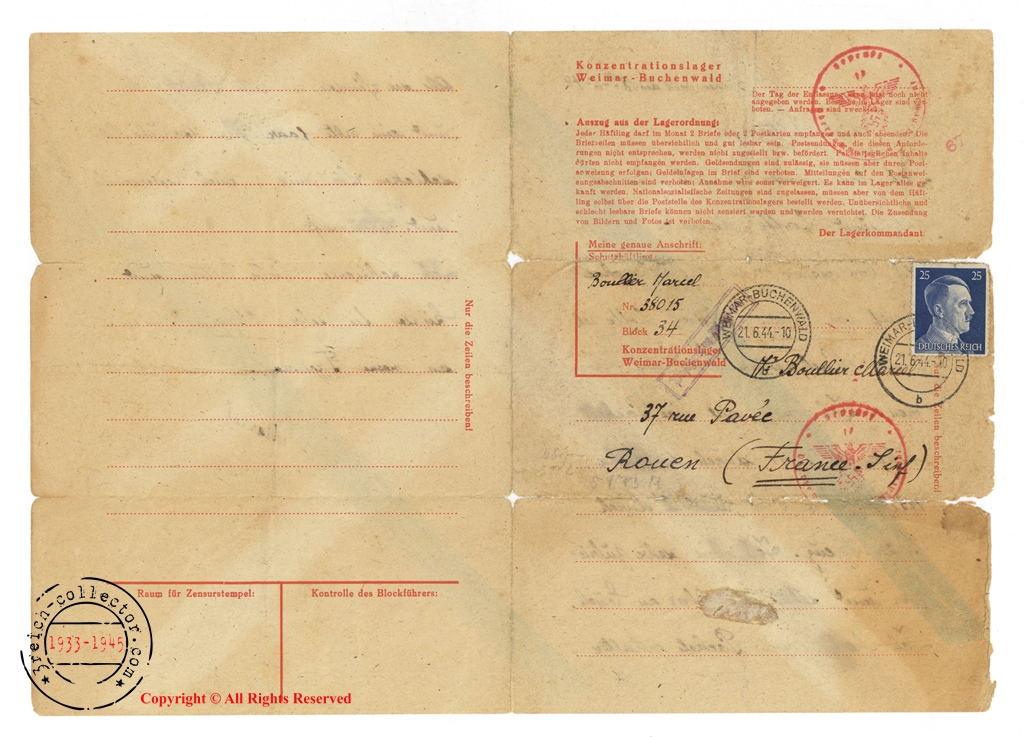 Konzentrationslager
Weimar-Buchenwald
Der Tag der Entlassung kann jetzt noch nicht
angegeben werden. Besuche im Lager sind ver-
boten. — Anfragen sind zwecklos.
Auszug aus der Lagerordnung:
Jeder Häftling darf im Monat 2 Briefe oder 2 Postkarten empfangen und auch absenden. Die
Briefzeilen müssen übersichtlich und gut lesbar sein. Postsendungen, die diesen Anforde-
rungen nicht entsprechen, werden nicht zugestellt bzw. befördert. Pakete jeglichen Inhalts
dürfen nicht empfangen werden. Geldsendungen sind zulässig, sie müssen aber durch Post-
anweisung erfolgen; Geldeinlagen im Brief sind verboten. Mitteilungen auf den Postanwei-
sungsabschnitten sind verboten; Annahme wird sonst verweigert. Es kann im Lager alles ge-
kauft werden. Nationalsozialistische Zeitungen sind zugelassen, müssen aber von dem Häft-
ling selbst über die Poststelle des Konzentrationslagers bestellt werden. Unübersichtliche und
schlecht lesbare Briefe können nicht zensiert werden und werden vernichtet. Die Zusendung
von Bildern und Fotos ist verboten.
Der Lagerkommandant
geprüft
Meine genaue Anschrift:
Schutzhäftling
Boullier Marcel
Nr. 38015
Block 34
Konzentrationslager
Weimar-Buchenwald
WEIMAR-BUCHENWALD
21.6.44.-10
25 25
DEUTSCHES REICH
WEIMAR-
21.6.44.-10
b
Boullier Marcel
37 rue Pavée
Rouen (France S. inf)
geprüft
Nur die Zeilen beschreiben!
die Zeilen beschreiben!
Raum für Zensurstempel:
Kontrolle des Blockführers:
3reich-collector.com
1933-1945
Copyright © All Rights Reserved